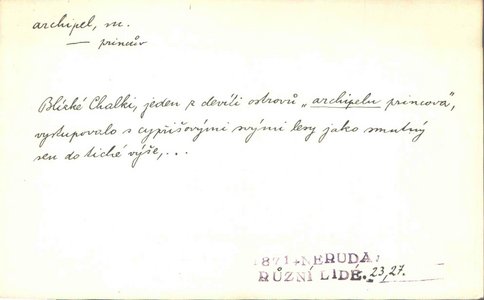 archipel, m.
— princův
Blízké Chalki, jeden z devíti ostrovů „archipelu princova",
vystupovalo s cypřišovými svými lesy jako smutný
sen do tiché výše, ...
1871. NERUDA,
RŮZNÍ LIDÉ. 23, 27.